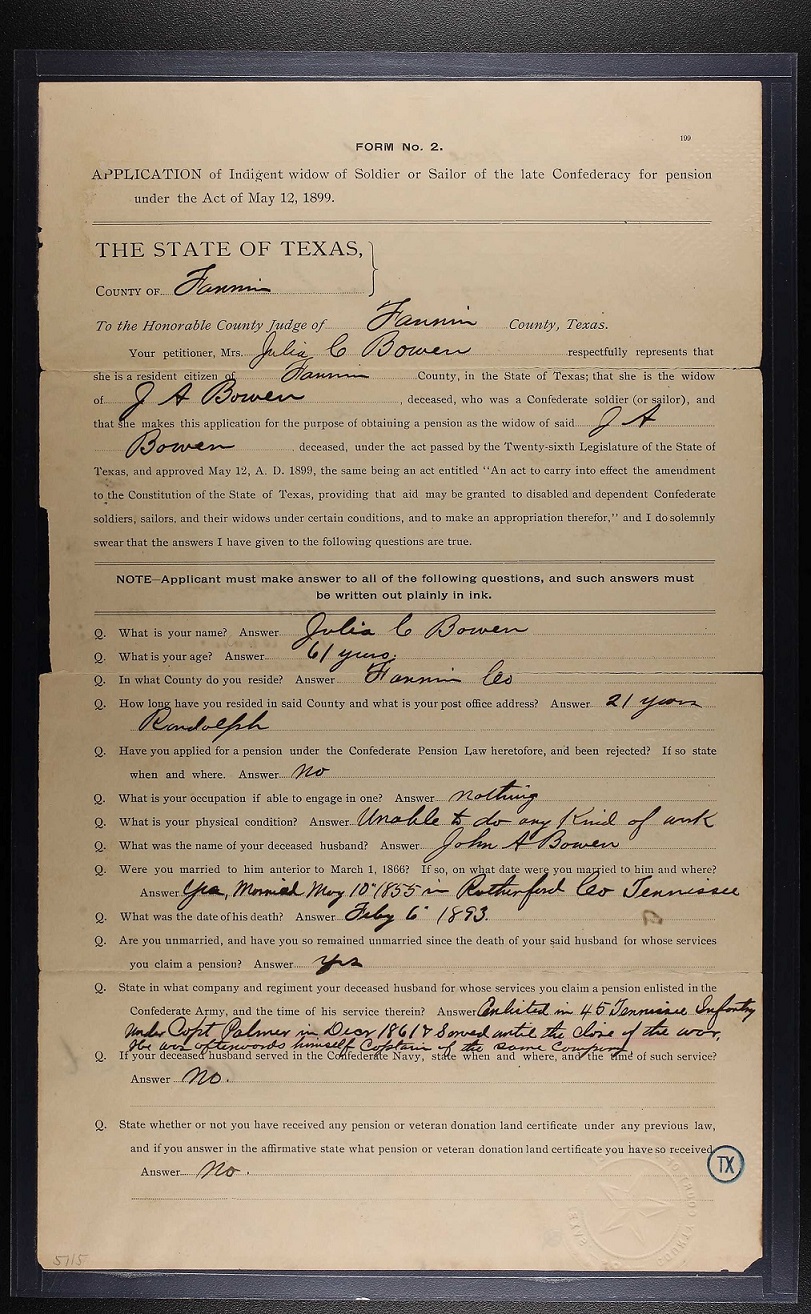 199
FORM No. 2.
APPLICATION of Indigent widow of Soldier or Sailor of the late Confederacy for pension
under the Act of May 12, 1899.
THE STATE OF TEXAS,
COUNTY OF Fannin
To the Honorable County Judge of Fannin County, Texas.
Your petitioner, Mrs. Julia C Bowen respectfully represents that
she is a resident citizen of Fannin County, in the State of Texas; that she is the widow
of J A Bowen, deceased, who was a Confederate soldier (or sailor), and
that she makes this application for the purpose of obtaining a pension as the widow of said J A
Bowen, deceased, under the act passed by the Twenty-sixth Legislature of the State of
Texas, and approved May 12, A. D. 1899, the same being an act entitled "An act to carry into effect the amendment
to the Constitution of the State of Texas, providing that aid may be granted to disabled and dependent Confederate
soldiers, sailors, and their widows under certain conditions, and to make an appropriation therefor," and I do solemnly
swear that the answers I have given to the following questions are true.
NOTE—Applicant must make answer to all of the following questions, and such answers must
be written out plainly in ink.
Q. What is your name? Answer Julia C Bowen
Q. What is your age? Answer 61 years.
Q. In what County do you reside? Answer Fannin Co
Q. How long have you resided in said County and what is your post office address? Answer 21 years
Randolph
Q. Have you applied for a pension under the Confederate Pension Law heretofore, and been rejected? If so state
when and where. Answer no
Q. What is your occupation if able to engage in one? Answer nothing
Q. What is your physical condition? Answer Unable to do any Kind of work
Q. What was the name of your deceased husband? Answer John A Bowen
Q. Were you married to him anterior to March 1, 1866? If so, on what date were you married to him and where?
Answer Yes, Married May 10" 1855 in Rutherford Co Tennessee
Q. What was the date of his death? Answer Feby 6" 1893.
Q. Are you unmarried, and have you so remained unmarried since the death of your said husband for whose services
you claim a pension? Answer yes
Q. State in what company and regiment your deceased husband for whose services you claim a pension enlisted in the
Confederate Army, and the time of his service therein? Answer Enlisted in 45 Tennessee Infantry
under Capt Palmer in Decr 1861 & Served until the close of the war,
He was afterwords himself Captain of the same Company
Q. If your deceased husband served in the Confederate Navy, state when and where, and the time of such service?
Answer No.
Q. State whether or not you have received any pension or veteran donation land certificate under any previous law,
and if you answer in the affirmative state what pension or veteran donation land certificate you have so received.
Answer No.
TX
5715